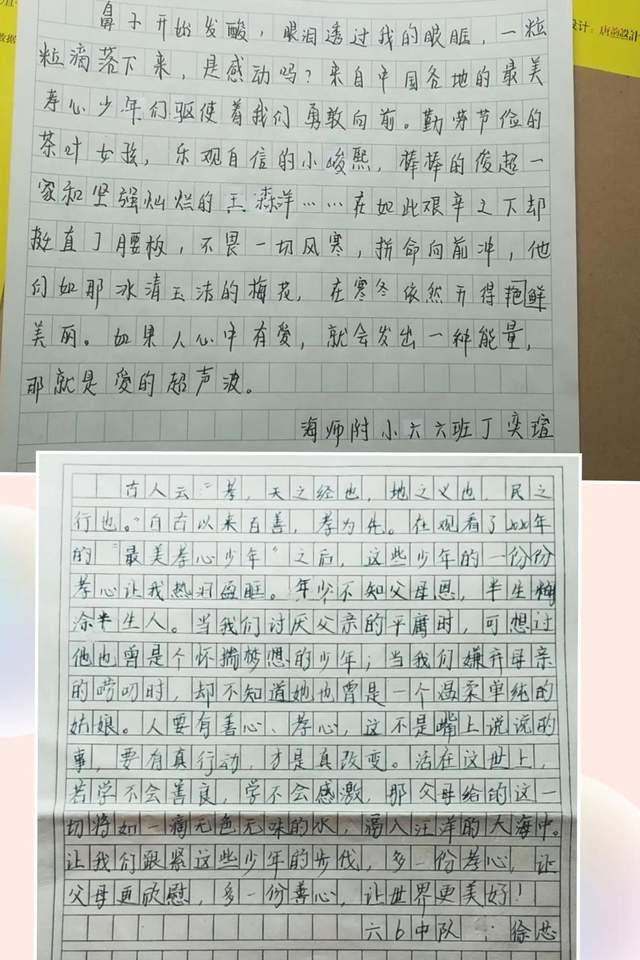 设计：唐菊設計
鼻子开始发酸，眼泪透过我的眼眶，一粒
粒滴落下来，是感动吗？来自中国各地的最美
孝心少年们驱使着我们勇敢向前。勤劳节俭的
茶叶女孩，乐观自信的小峻熙，棒棒的俊超一
家和坚强灿烂的王森洋……在如此艰辛之下却
挺直了腰板，不畏一切风寒，拚命向前冲，他
们如那冰清玉洁的梅花，在寒冬依然开得艳鲜
美丽。如果人心中有爱，就会发出一种能量，
那就是爱的超声波。
海师附小六六班丁奕瑄
古人云“孝，天之经也，地之义也，民之
行也。”自古以来百善，孝为先。在观看了2020年
的“最美孝心少年”之后，这些少年的一份份
孝心让我热泪盈眶。年少不知父母恩，半生糊
涂半生人。当我们讨厌父亲的平庸时，可想过
他也曾是个怀揣梦想的少年；当我们嫌弃母亲
的唠叨时，却不知道她也曾是一个温柔单纯的
姑娘。人要有善心、孝心，这不是嘴上说说的
事，要有真行动，才是真改变。活在这世上，
若学不会善良，学不会感激，那父母给的这一
切将如一滴无色无味的水，滴入汪洋的大海中。
让我们跟紧这些少年的步伐，多一份孝心，让
父母更欣慰，多一份善心，让世界更美好！
六6中队：徐芯